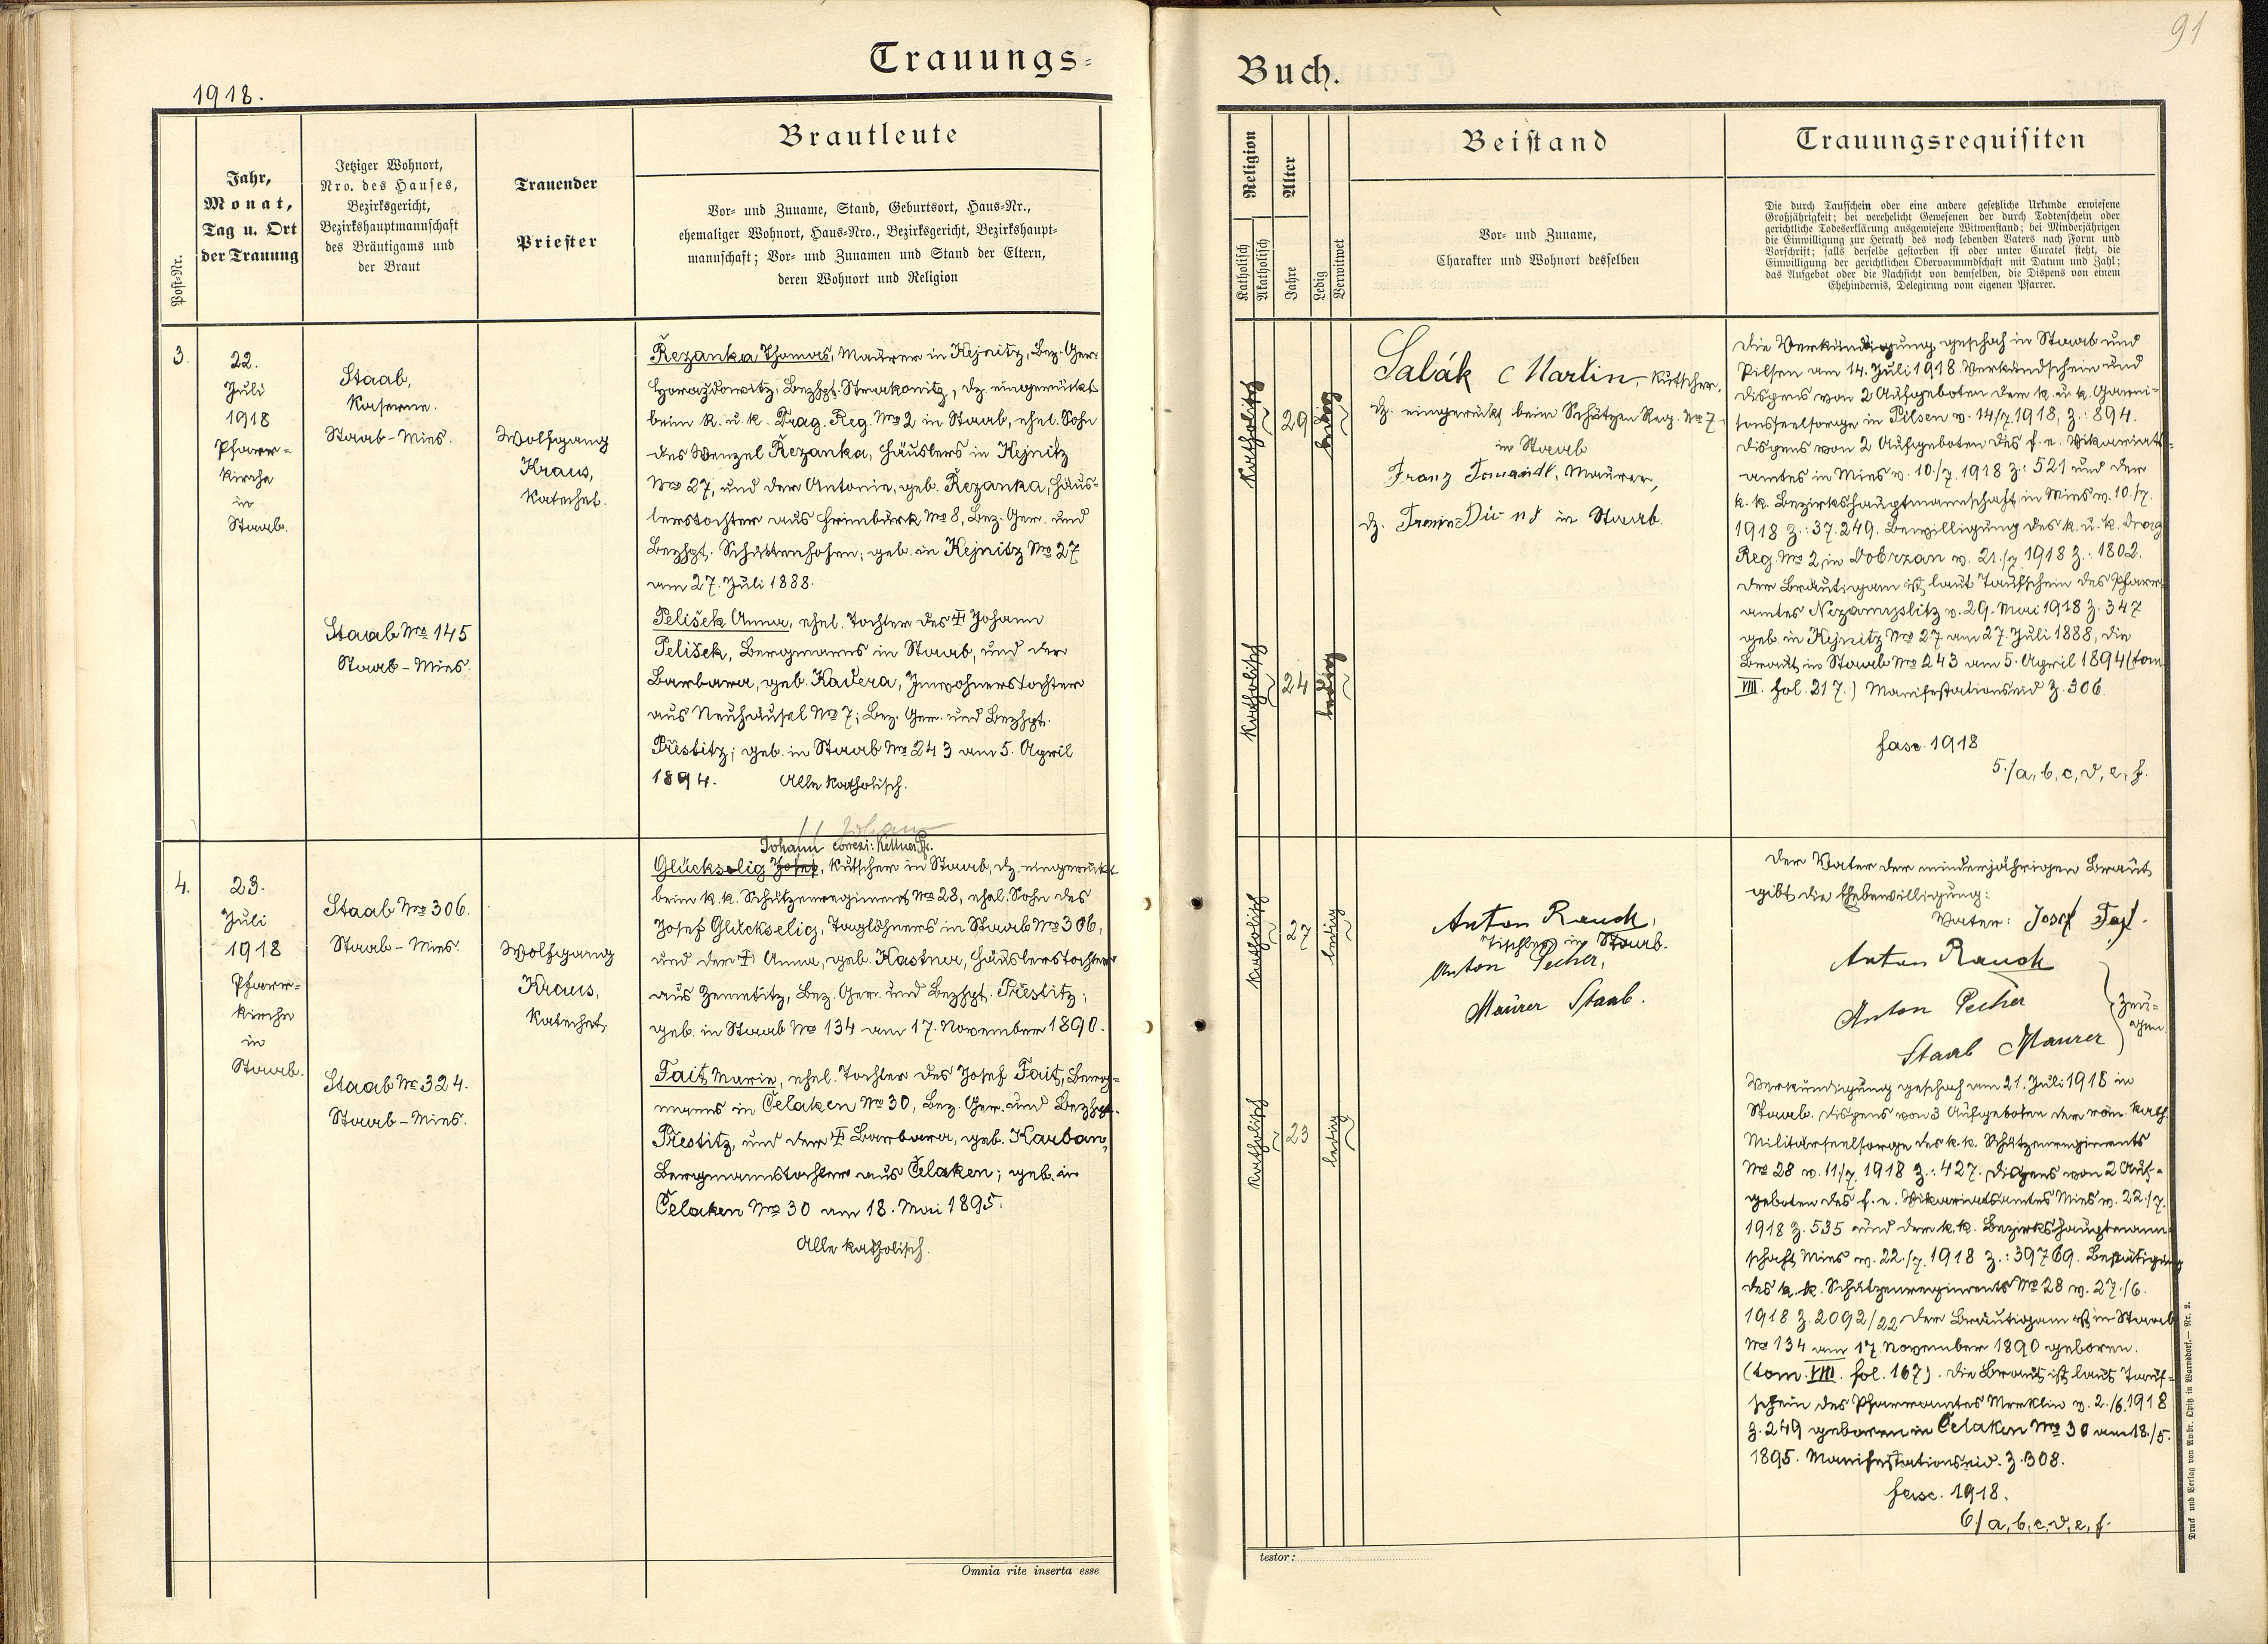 91
Trauungs-
Buch.
1918.
Post-Nr.
Jahr,
Monat,
Tag u. Ort
der Trauung
Jetziger Wohnort,
Nro. des Hauses,
Bezirksgericht,
Bezirkshauptmannschaft
des Bräutigams und
der Braut
Trauender
Priester
Brautleute
Vor- und Zuname, Stand, Geburtsort, Haus-Nr.,
ehemaliger Wohnort, Haus-Nro., Bezirksgericht, Bezirkshaupt-
mannschaft; Vor- und Zunamen und Stand der Eltern,
deren Wohnort und Religion
Religion
Katholisch
Akatholisch
Alter
Jahre
Ledig
Verwitwet
Beistand
Vor- und Zuname,
Charakter und Wohnort desselben
Trauungsrequisiten
Die durch Taufschein oder eine andere gesetzliche Urkunde erwiesene
Großjährigkeit; bei verehelicht Gewesenen der durch Todtenschein oder
gerichtliche Todeserklärung ausgewiesene Witwenstand; bei Minderjährigen
die Einwilligung zur Heirath des noch lebenden Vaters nach Form und
Vorschrift; falls derselbe gestorben ist oder unter Curatel steht, die
Einwilligung der gerichtlichen Obervormundschaft mit Datum und Zahl;
das Aufgebot oder die Nachsicht von demselben, die Dispens von einem
Ehehindernis, Delegirung vom eigenen Pfarrer.
3.
22.
Juli
1918
Pfarr-
kirche
in
Staab.
Staab,
Kaserne.
Staab-Mies.
Staab No 145
Staab-Mies.
Wolfgang
Kraus,
Katechet.
Řezanka Thomas, Maurer in Kejnitz, Bez. Ger.
Horaždowitz, Bezhpt. Strakonitz, dz. eingerückt
beim k. u. k. Drag. Reg. No 2 in Staab, ehel. Sohn
des Wenzel Řezanka, Häuslers in Kejnitz
No 27, und der Antonie, geb. Řezanka, Häus-
lerstochter aus No 8, Bez. Ger. und
Bezhpt. Schüttenhofen; geb. in Kejnitz No 27
am 27. Juli 1888.
Pelišek Anna, ehel. Tochter des † Johann
Pelišek, Bergmanns in Staab, und der
Barbara, geb. Kaděra, Inwohnerstochter
aus Neuhäusel No 7, Bez. Ger. und Bezhpt.
Přestitz; geb. in Staab No 243 am 5. April
1894. Alle katholisch.
katholisch
29
ledig
katholisch
24
ledig
Salák Martin, Kutscher,
dz. eingerückt beim Schützen Reg. No 7
in Staab
Franz Tomandl, Maurer,
dz. in Staab.
Die Verkündigung geschah in Staab und
Pilsen am 14. Juli 1918. Verkündschein und
Dispens von 2 Aufgeboten der k. u. k. Garni-
sonsseelsorge in Pilsen v. 14/7. 1918, Z: 894.
Dispens von 2 Aufgeboten des f. e. Vikariats-
amtes in Mies v. 10./7. 1918 Z: 521 und der
k. k. Bezirkshauptmannschaft in Mies v. 10./7.
1918 Z: 37.249. Bewilligung des k. u. k. Drag
Reg. No 2 in Dobrzan v. 21./7. 1918 Z: 1802.
Der Bräutigam ist laut Taufschein des Pfarr-
amtes Nezamyslitz v. 29. Mai 1918 Z. 347
geb. in Kejnitz No 27 am 27. Juli 1888, die
Braut in Staab No 243 am 5. April 1894 (tom.
VIII. fol. 217.) Manifestationseid Z. 306.
fasc. 1918
5./a, b, c, d, e, f.
4.
23.
Juli
1918
Pfarr-
kirche
in
Staab.
Staab No 306.
Staab-Mies.
Staab No 324.
Staab-Mies.
Wolfgang
Kraus,
Katechet.
Johann
Johann Correxi: Kettner Pfr.
Glückselig Josef, Kutscher in Staab, dz. eingerückt
beim k. k. Schützenregiment No 28, ehel. Sohn des
Josef Glückselig, Taglöhners in Staab No 306,
und der † Anna, geb. Kastner, Häuslerstochter
aus Zemetitz, Bez. Ger. und Bezhpt. Přestitz;
geb. in Staab No 134 am 17. November 1890.
Fait Marie, ehel. Tochter des Josef Fait, Berg-
manns in Čelaken No 30, Bez. Ger. und Bezhpt.
Přestitz, und der † Barbara, geb. Karban,
Bergmannstochter aus Čelaken; geb. in
Čelaken No 30 am 18. Mai 1895.
Alle katholisch.
katholisch
27
ledig
katholisch
23
ledig
Anton Rauch,
Tischler in Staab.
Anton Pecher,
Maurer Staab.
Der Vater der minderjährigen Braut
gibt die Ehebewilligung:
Vater: Josef
Anton Rauch
Anton Pecher
Staab Maurer
Zeu-
gen
Verkündigung geschah am 21. Juli 1918 in
Staab. Dispens von 3 Aufgeboten der röm. kath.
Militärseelsorge des k. k. Schützenregiments
No 28 v. 11./7. 1918 Z: 427. Dispens von 2 Auf-
geboten des f. e. Vikariatsamtes Mies v. 22./7.
1918 Z. 535 und der k. k. Bezirkshauptmann-
schaft Mies v. 22./7. 1918 Z: 39769. Bestätigung
des k. k. Schützenregiments No 28 v. 27./6.
1918 Z. 2092/22 Der Bräutigam ist in Staab
No 134 am 17. November 1890 geboren.
(tom. VIII. fol. 167). Die Braut ist laut Tauf-
schein des Pfarramtes Merklin v. 2./6. 1918
Z. 249 geboren in Čelaken No 30 am 18./5.
1895. Manifestationseid. Z. 308.
fasc. 1918.
6./a, b, c, d, e, f.
Omnia rite inserta esse
testor:
Druck und Verlag von Ambr. Opitz in Warnsdorf. — Nr. 2.